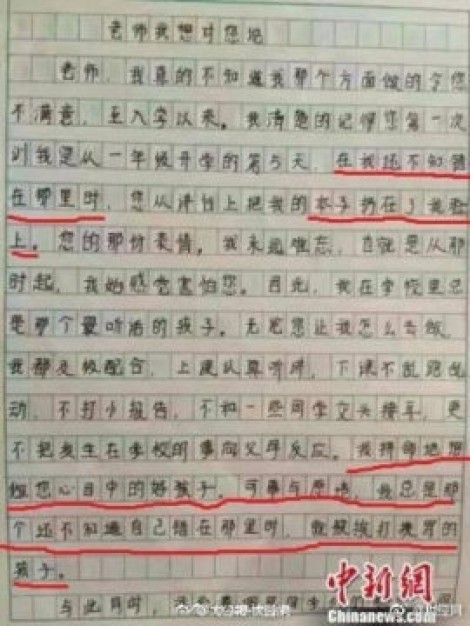 老师我想对您说
老师,我真的不知道我那个方面做的令您
不满意,至入学以来。我清楚的记得您第一次
训我是从一年级开学的第5天,在我还不知错
在哪里时,您从讲台上把我的本子扔在了我脸
上。您的那份表情,我永远难忘,也就是从那
时起,我始感觉害怕您。因此,我在学校里总
是那个最听话的孩子。无论您让我怎么去做,
我都是积极配合,上课认真听讲,下课不乱跑乱
动,不打小报告,不和一些同学交头接耳,更
不把发生在学校的事向父母反应。我拼命地想
做您心目中的好孩子,可事与愿违,我总是那
个还不知道自己错在哪里时,我就挨打挨骂的
孩子。
与此同时,
中新网
Chinanews.com